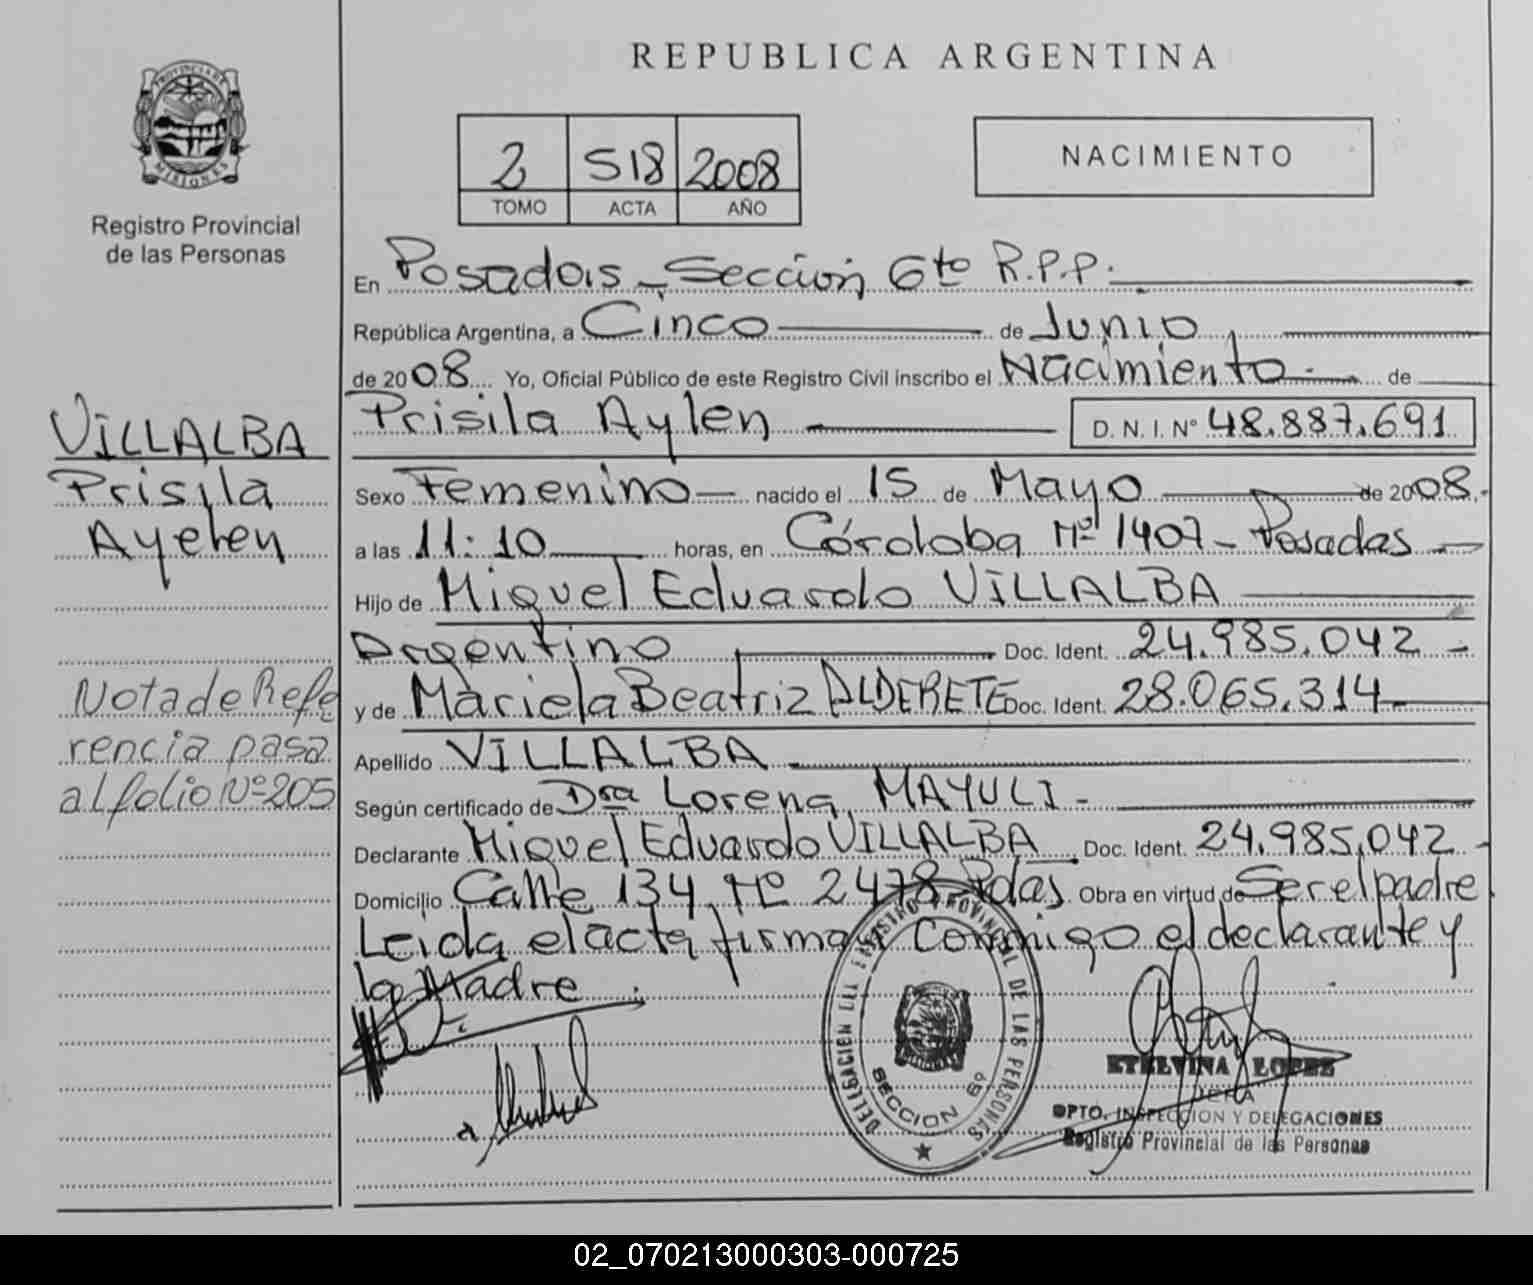 REPUBLICA ARGENTINA
PROVINCIA DE
MISIONES
Registro Provincial
de las Personas
2 518 2008
TOMO ACTA AÑO
NACIMIENTO
En Posadas - Sección 6ta R.P.P.
República Argentina, a Cinco de Junio
de 2008 Yo, Oficial Público de este Registro Civil inscribo el Nacimiento de
Prisila Aylen D. N. I. Nº 48.887.691
Sexo Femenino nacido el 15 de Mayo de 2008.-
a las 11:10 horas, en Córdoba Nº 1407 - Posadas
Hijo de Miguel Eduardo VILLALBA
Argentino Doc. Ident. 24.985.042 -
y de Mariela Beatriz ALDERETE Doc. Ident. 28.065.314
Apellido VILLALBA
Según certificado de Dra Lorena MAYULI -
Declarante Miguel Eduardo VILLALBA Doc. Ident. 24.985.042 -
Domicilio Calle 134 Nº 2478 Pdas. Obra en virtud de Ser el padre.
Leida el acta firman Conmigo el declarante y
la Madre.
VILLALBA
Prisila
Ayelen
Nota de Refe
rencia pasa
al folio Nº 205
DELEGACION DEL REGISTRO PROVINCIAL DE LAS PERSONAS
SECCION 6º
ETELVINA LOPEZ
JEFA
DPTO. INSPECCION Y DELEGACIONES
Registro Provincial de las Personas
02_070213000303-000725